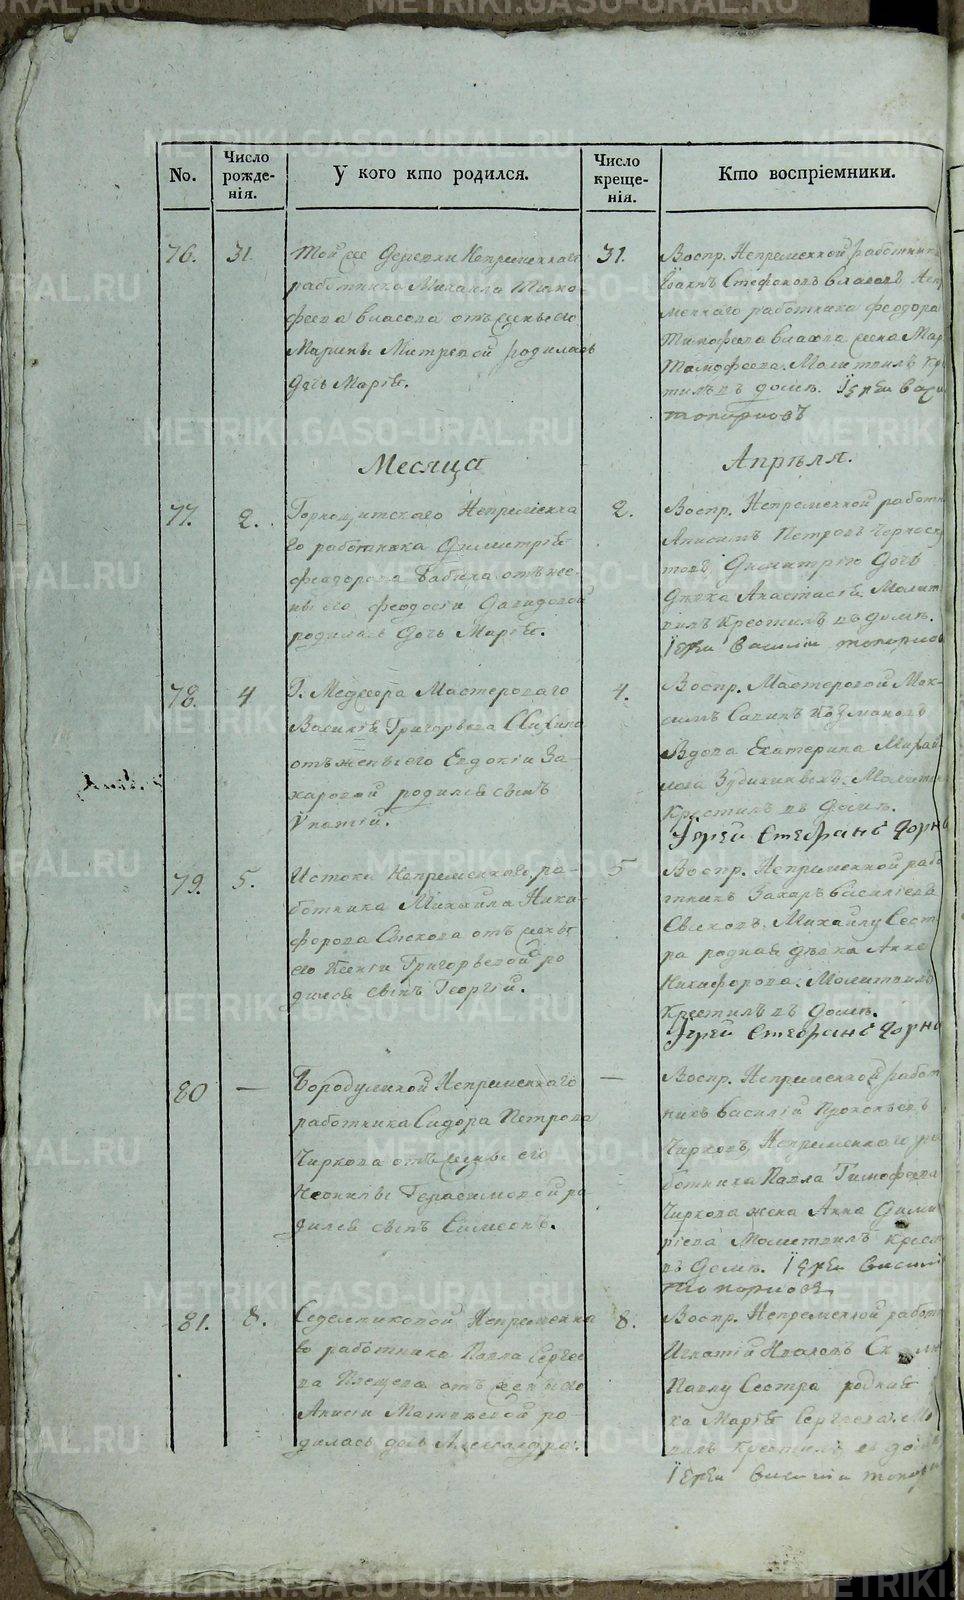 No.
Число рожде-нія.
У кого кто родился.
Число креще-нія.
Кто воспріемники.
76.
31.
Той же деревни Непременнаго
работника Михаила Тимо
феева Власова отъ жены его
Марины Митревой родилась
дочь Марія.
31.
Воспр. Непременной работникъ
Стефановъ Власовъ
меннаго работника феодора
Тимофеева Власова жена
Тимофеева. Молитвилъ
тилъ въ домѣ. Іерей
топорковъ
Месяца
Апрѣля.
77.
2.
Горнощитскаго Непременна
го работника Димитрія
феодорова Бабина отъ же-
ны его феодосіи Давидовой
родилась дочь Марія.
2.
Воспр. Непременной работн
Анисимъ Петровъ
Димитрію дочь
дѣвка Анастасія. Молит
вилъ Крестилъ въ домѣ.
Іерей Василій топорков
78.
4
Мастероваго
Василія Григорьева
отъ жены его Евдокіи За
харовой родился сынъ
Ипатій.
4.
Воспр. Мастеровой Мак-
симъ Савинъ
Вдова Екатерина Михай
лова Молитв
Крестилъ въ домѣ.
Іерей Стефанъ Чорн
79.
5.
Истока Непременнаго ра-
ботника Михаила Ники-
форова Сыскова отъ жены
его Ксеніи Григорьевой ро
дился сынъ Георгій.
5
Воспр. Непременной рабо
тникъ Захаръ Василіевъ
Сысковъ. Михаилу Сест
ра родная дѣвка Анна
Никифорова. Молитвилъ
Крестилъ въ домѣ.
Іерей Стефанъ Чорно
80
—
Бородулиной Непременнаго
работника Сидора Петрова
Чиркова отъ жены его
Неонилы Герасимовой ро
дился сынъ Симеонъ.
—
Воспр. Непременной работ
никъ Василій Прокопьевъ
Чирковъ, Непременнаго ра
ботника Павла Тимофеева
Чиркова жена Анна Дими
ріева Молитвилъ Крест
въ домѣ. Іерей Василій
топорков
81.
8.
Седельниковой Непременна
го работника Павла Сергее
ва Плещева отъ жены его
Анисіи Матвѣевой ро-
дилась дочь Александра.
8.
Воспр. Непременной работ
Игнатій Ивановъ
Павлу Сестра родная
ка Марія Сергеева. Мо
вилъ Крестилъ въ до
Іерей Василіи топорк
METRIKI.GASO-URAL.RU